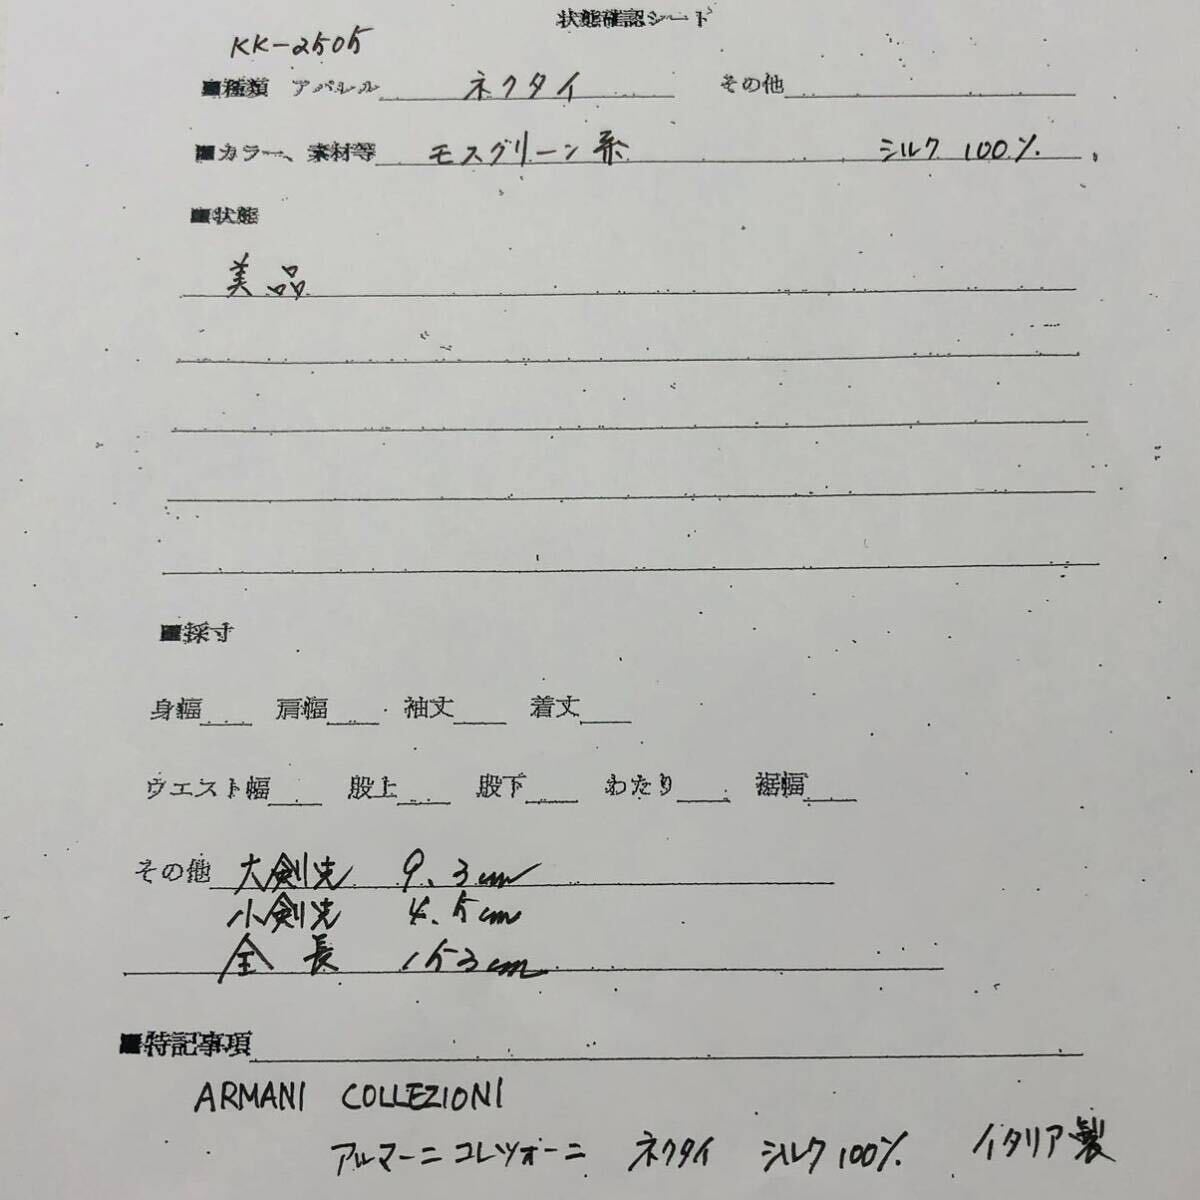 状態確認シート
KK-2505
■種類 アパレル ネクタイ その他
■カラー、素材等 モスグリーン系 シルク 100%
■状態
美品
■採寸
身幅 肩幅 袖丈 着丈
ウエスト幅 股上 股下 わたり 裾幅
その他 大剣先 9.3cm
小剣先 4.5cm
全長 153cm
■特記事項
ARMANI COLLEZIONI
アルマーニコレツォーニ ネクタイ シルク100% イタリア製